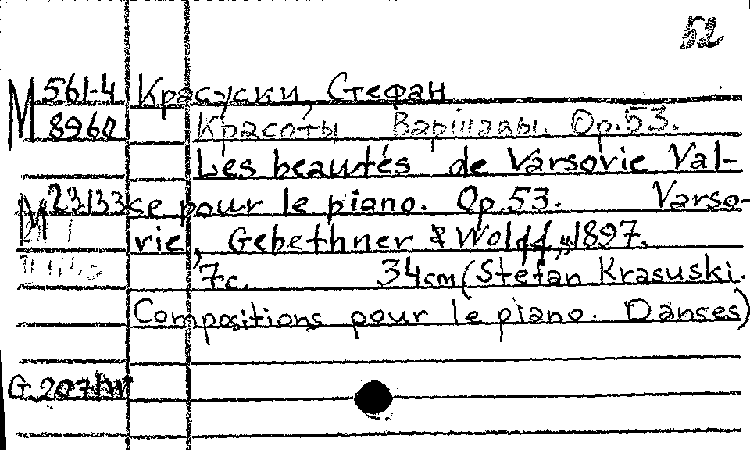 52
M 561-4 Красуски, Стефан
8960 Красоты Варшавы. Op.53.
Les beautés de Varsovie Val-
M 23133 se pour le piano. Op.53. Varso-
vie, Gebethner & Wolff, 1897.
7c. 34cm (Stefan Krasuski.
Compositions pour le piano. Danses)
G.207/